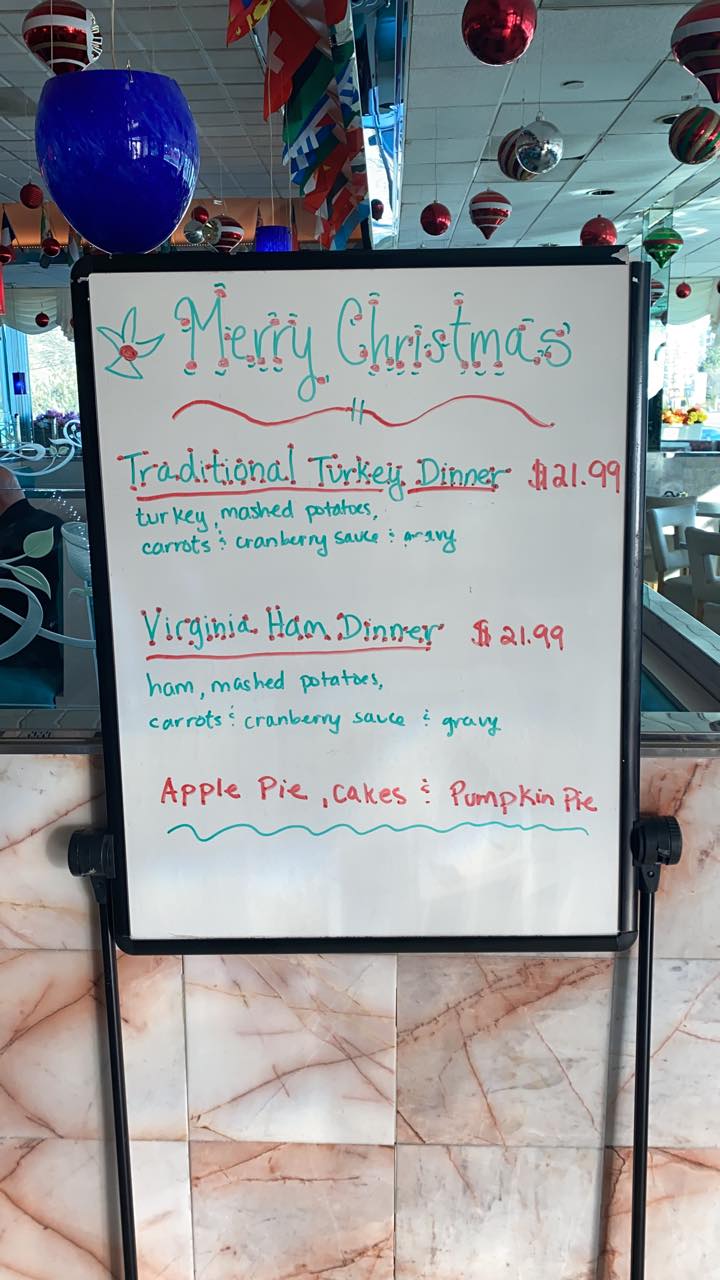 Merry Christmas
Traditional Turkey Dinner $21.99
turkey, mashed potatoes,
carrots & cranberry sauce & gravy
Virginia Ham Dinner $21.99
ham, mashed potatoes,
carrots & cranberry sauce & gravy
Apple Pie, cakes & Pumpkin Pie